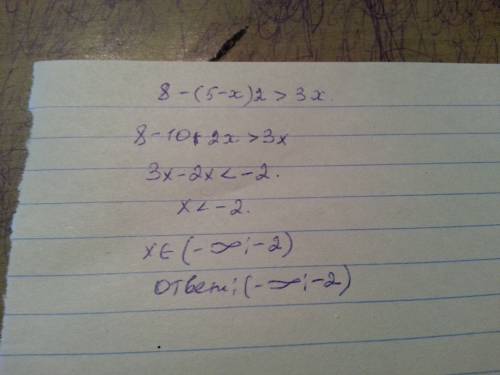 8-(5-x)2>3x.
8-10+2x>3x
3x-2x<-2.
x<-2.
x∈(-∞;-2)
Ответ:(-∞;-2)